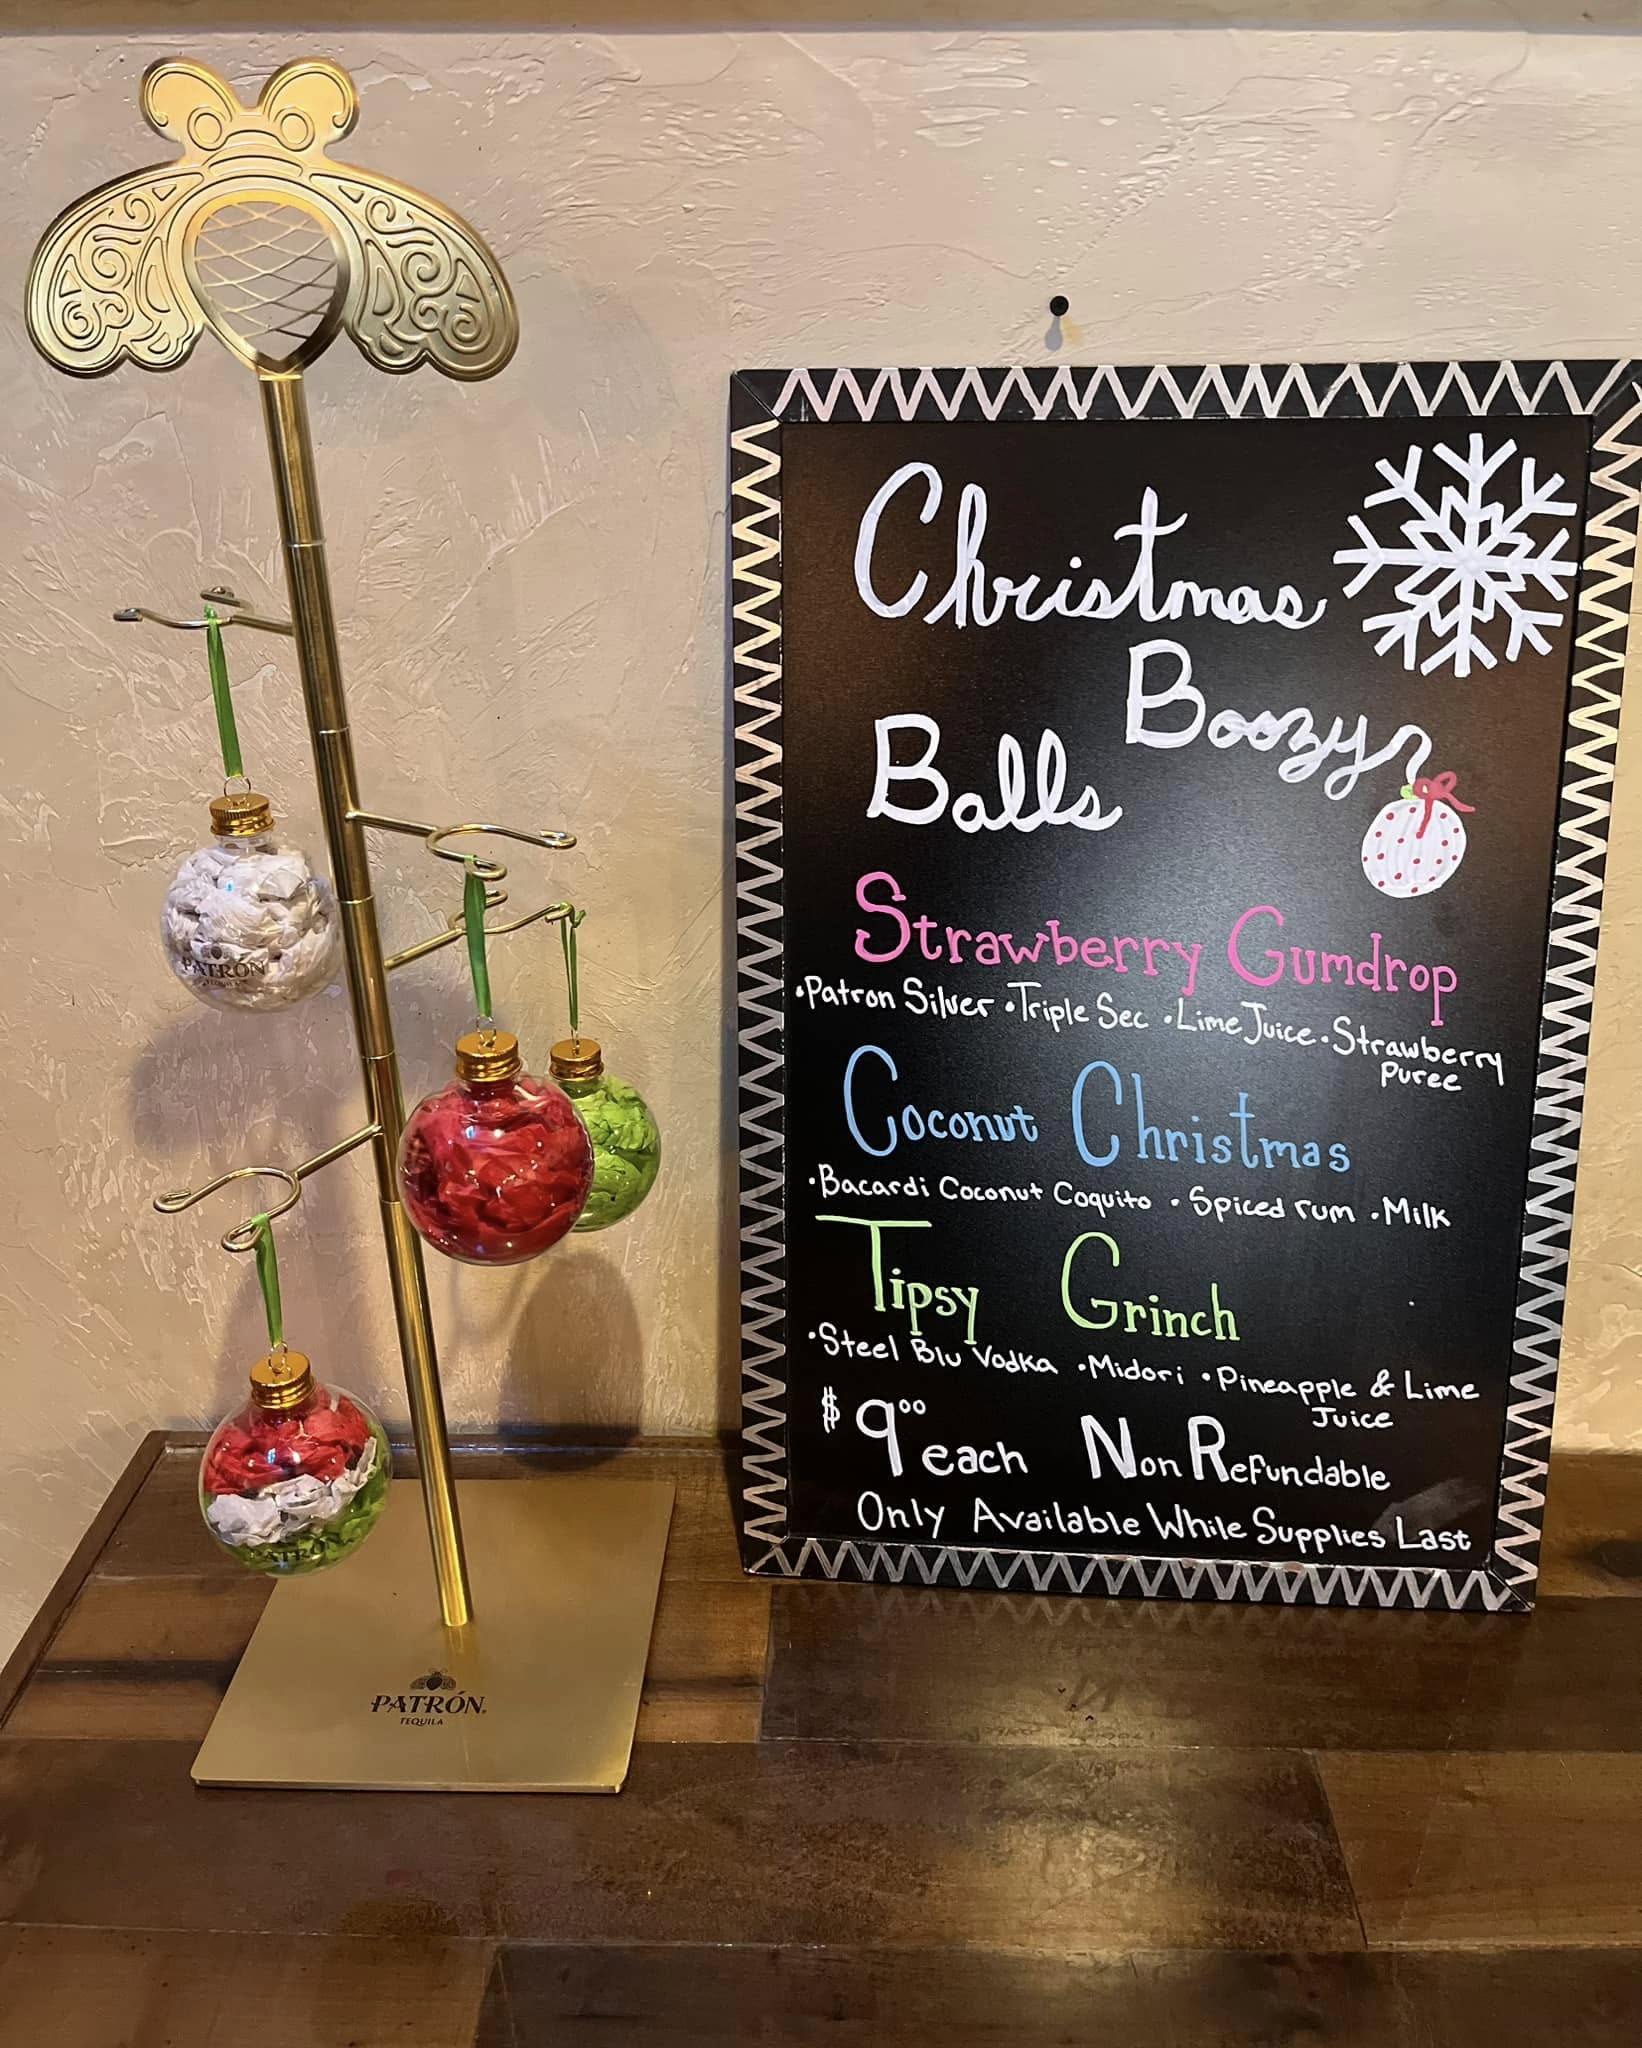 Christmas
Boozy
Balls
Strawberry Gumdrop
•Patron Silver •Triple Sec •Lime Juice •Strawberry
Puree
Coconut Christmas
•Bacardi Coconut Coquito •Spiced rum •Milk
Tipsy Grinch
•Steel Blu Vodka •Midori •Pineapple & Lime
Juice
$9.00 each Non Refundable
Only Available While Supplies Last
PATRÓN
TEQUILA
PATRÓN
PATRÓN
TEQUILA